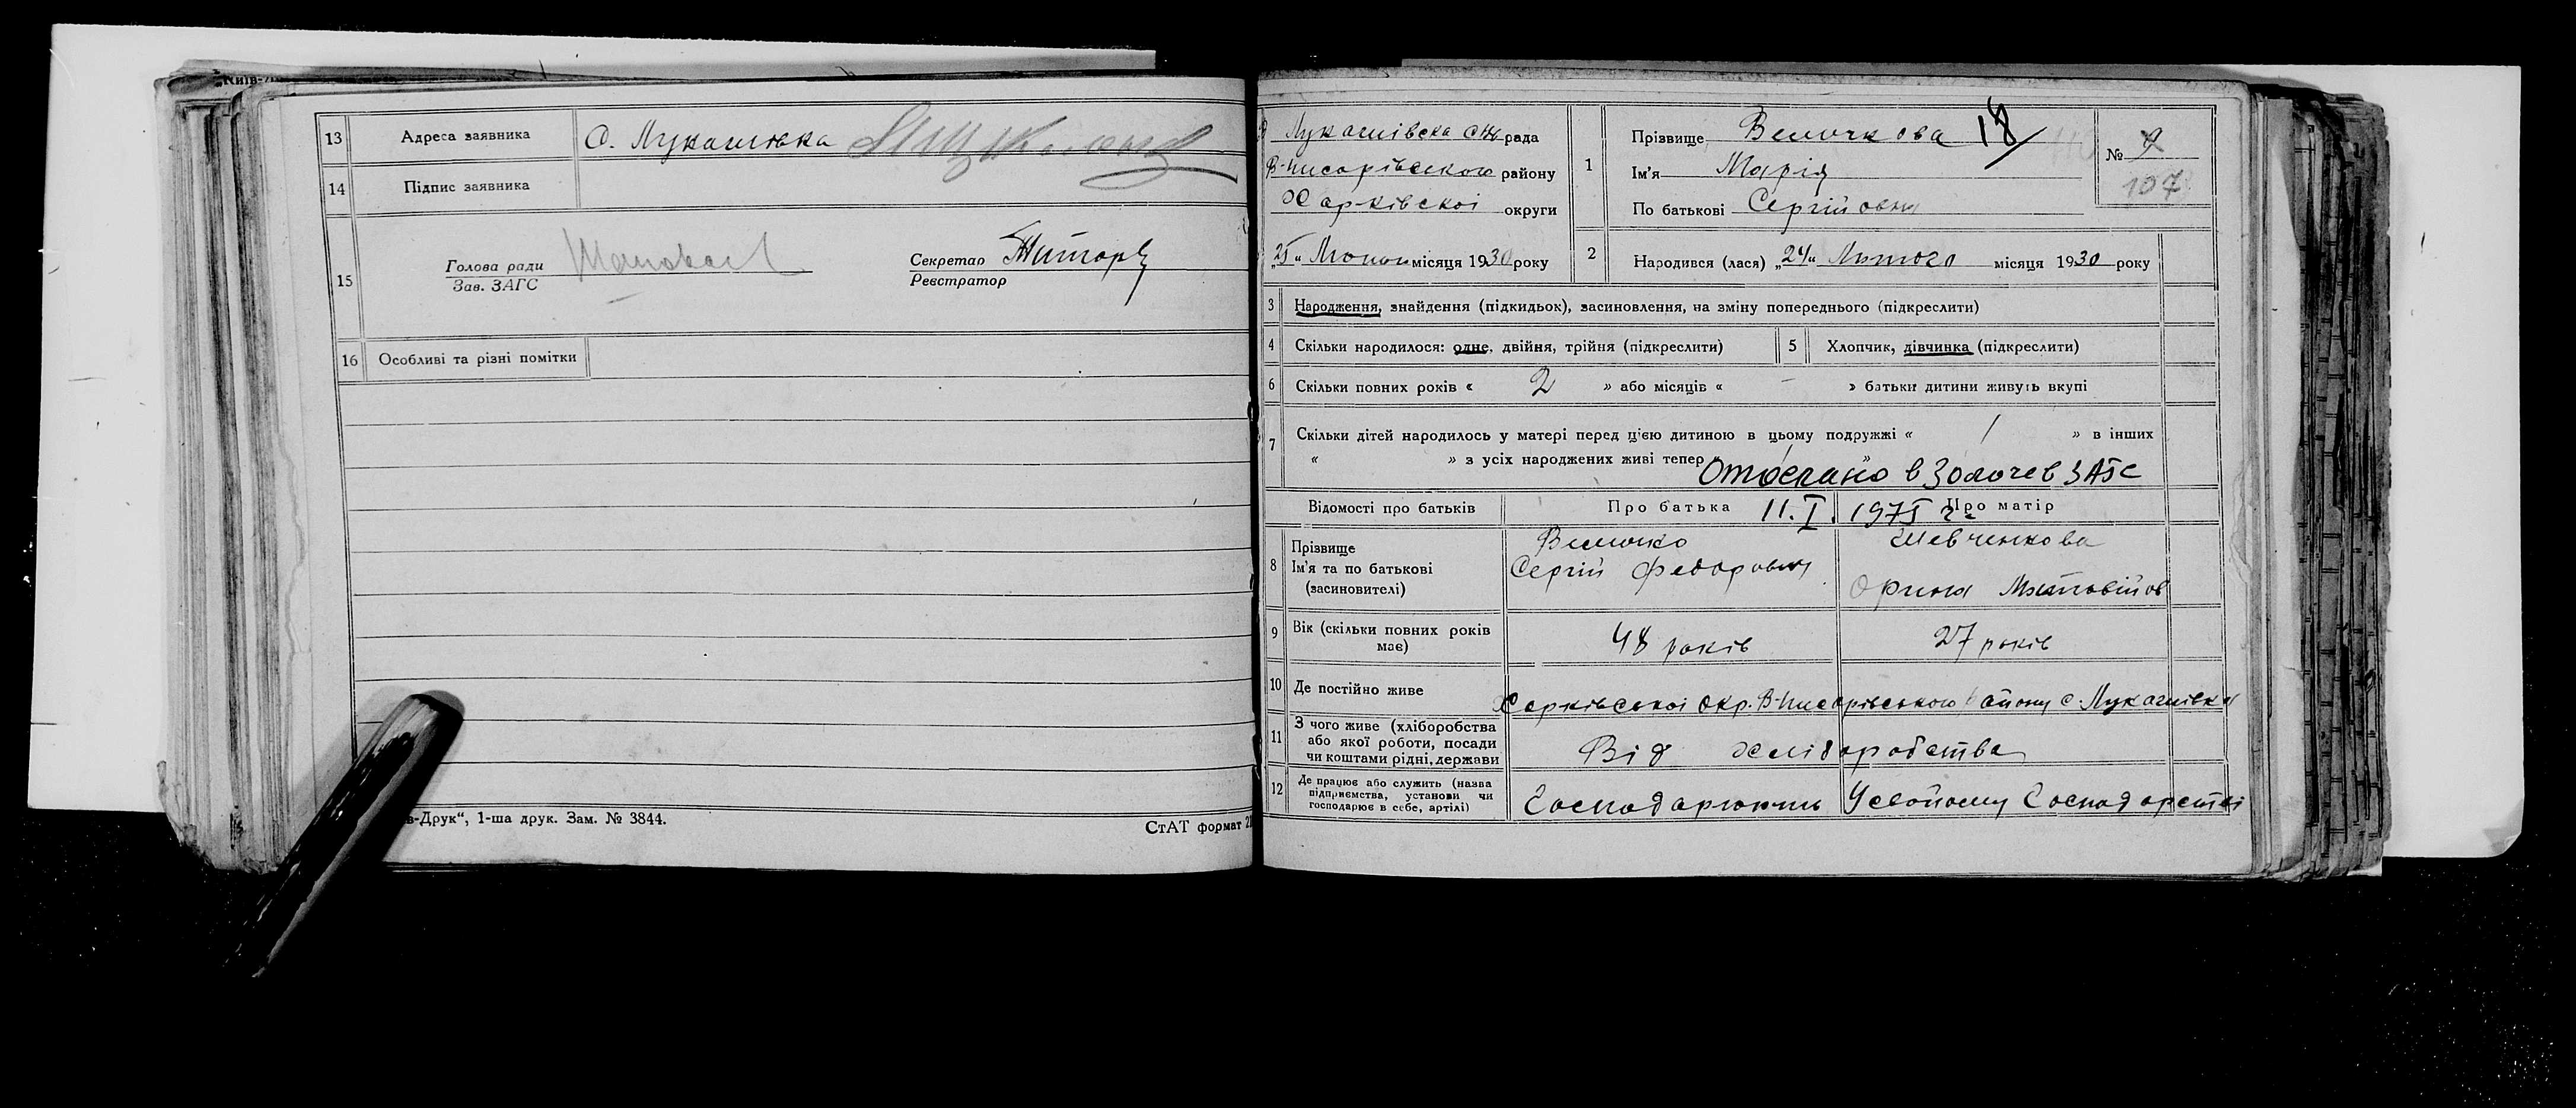 Київ-Д
13 Адреса заявника С. Лукашівка
14 Підпис заявника
15 Голова ради Секретар
Зав. ЗАГС Реєстратор
16 Особливі та різні помітки
в-Друк“, 1-ша друк. Зам. № 3844.
СтАТ формат 2
Лукашівска рада
В-Писарівського району
Харківскоі округи
„25“ місяця 1930 року
1 Прізвище Величкова 18
Ім'я Марія
По батькові Сергійовна
№ 9
107
2 Народився (лася) „24“ Лютого місяця 1930 року
3 Народження, знайдення (підкидьок), засиновлення, на зміну попереднього (підкреслити)
4 Скільки народилося: одне, двійня, трійня (підкреслити) 5 Хлопчик, дівчинка (підкреслити)
6 Скільки повних років « 2 » або місяців « – » батьки дитини живуть вкупі
7 Скільки дітей народилось у матері перед цією дитиною в цьому подружжі « 1 » в інших
« » з усіх народжених живі тепер « »
Отослано в Золочев ЗАГС
Відомості про батьків Про батька 11.I. 1975 г. Про матір
8 Прізвище Величко Шевченкова
Ім'я та по батькові Сергій Федорович
(засиновителі) Орина Матвійов
9 Вік (скільки повних років має) 48 років 27 років
10 Де постійно живе Харківськоі Окр. В-Писарівського району с. Лукашівка
11 З чого живе (хліборобства
або якої роботи, посади
чи коштами рідні, держави Від хліборобства
12 Де працює або служить (назва
підприємства, установи чи
господарює в себе, артілі) Господарюють У свойому Господарстві